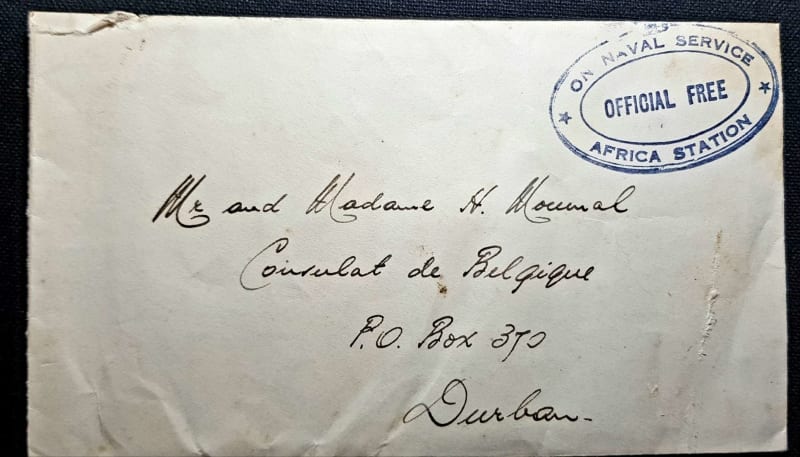 ON NAVAL SERVICE
OFFICIAL FREE
AFRICA STATION
Mr and Madame H.
Consulat de Belgique
P.O. Box 370
Durban-